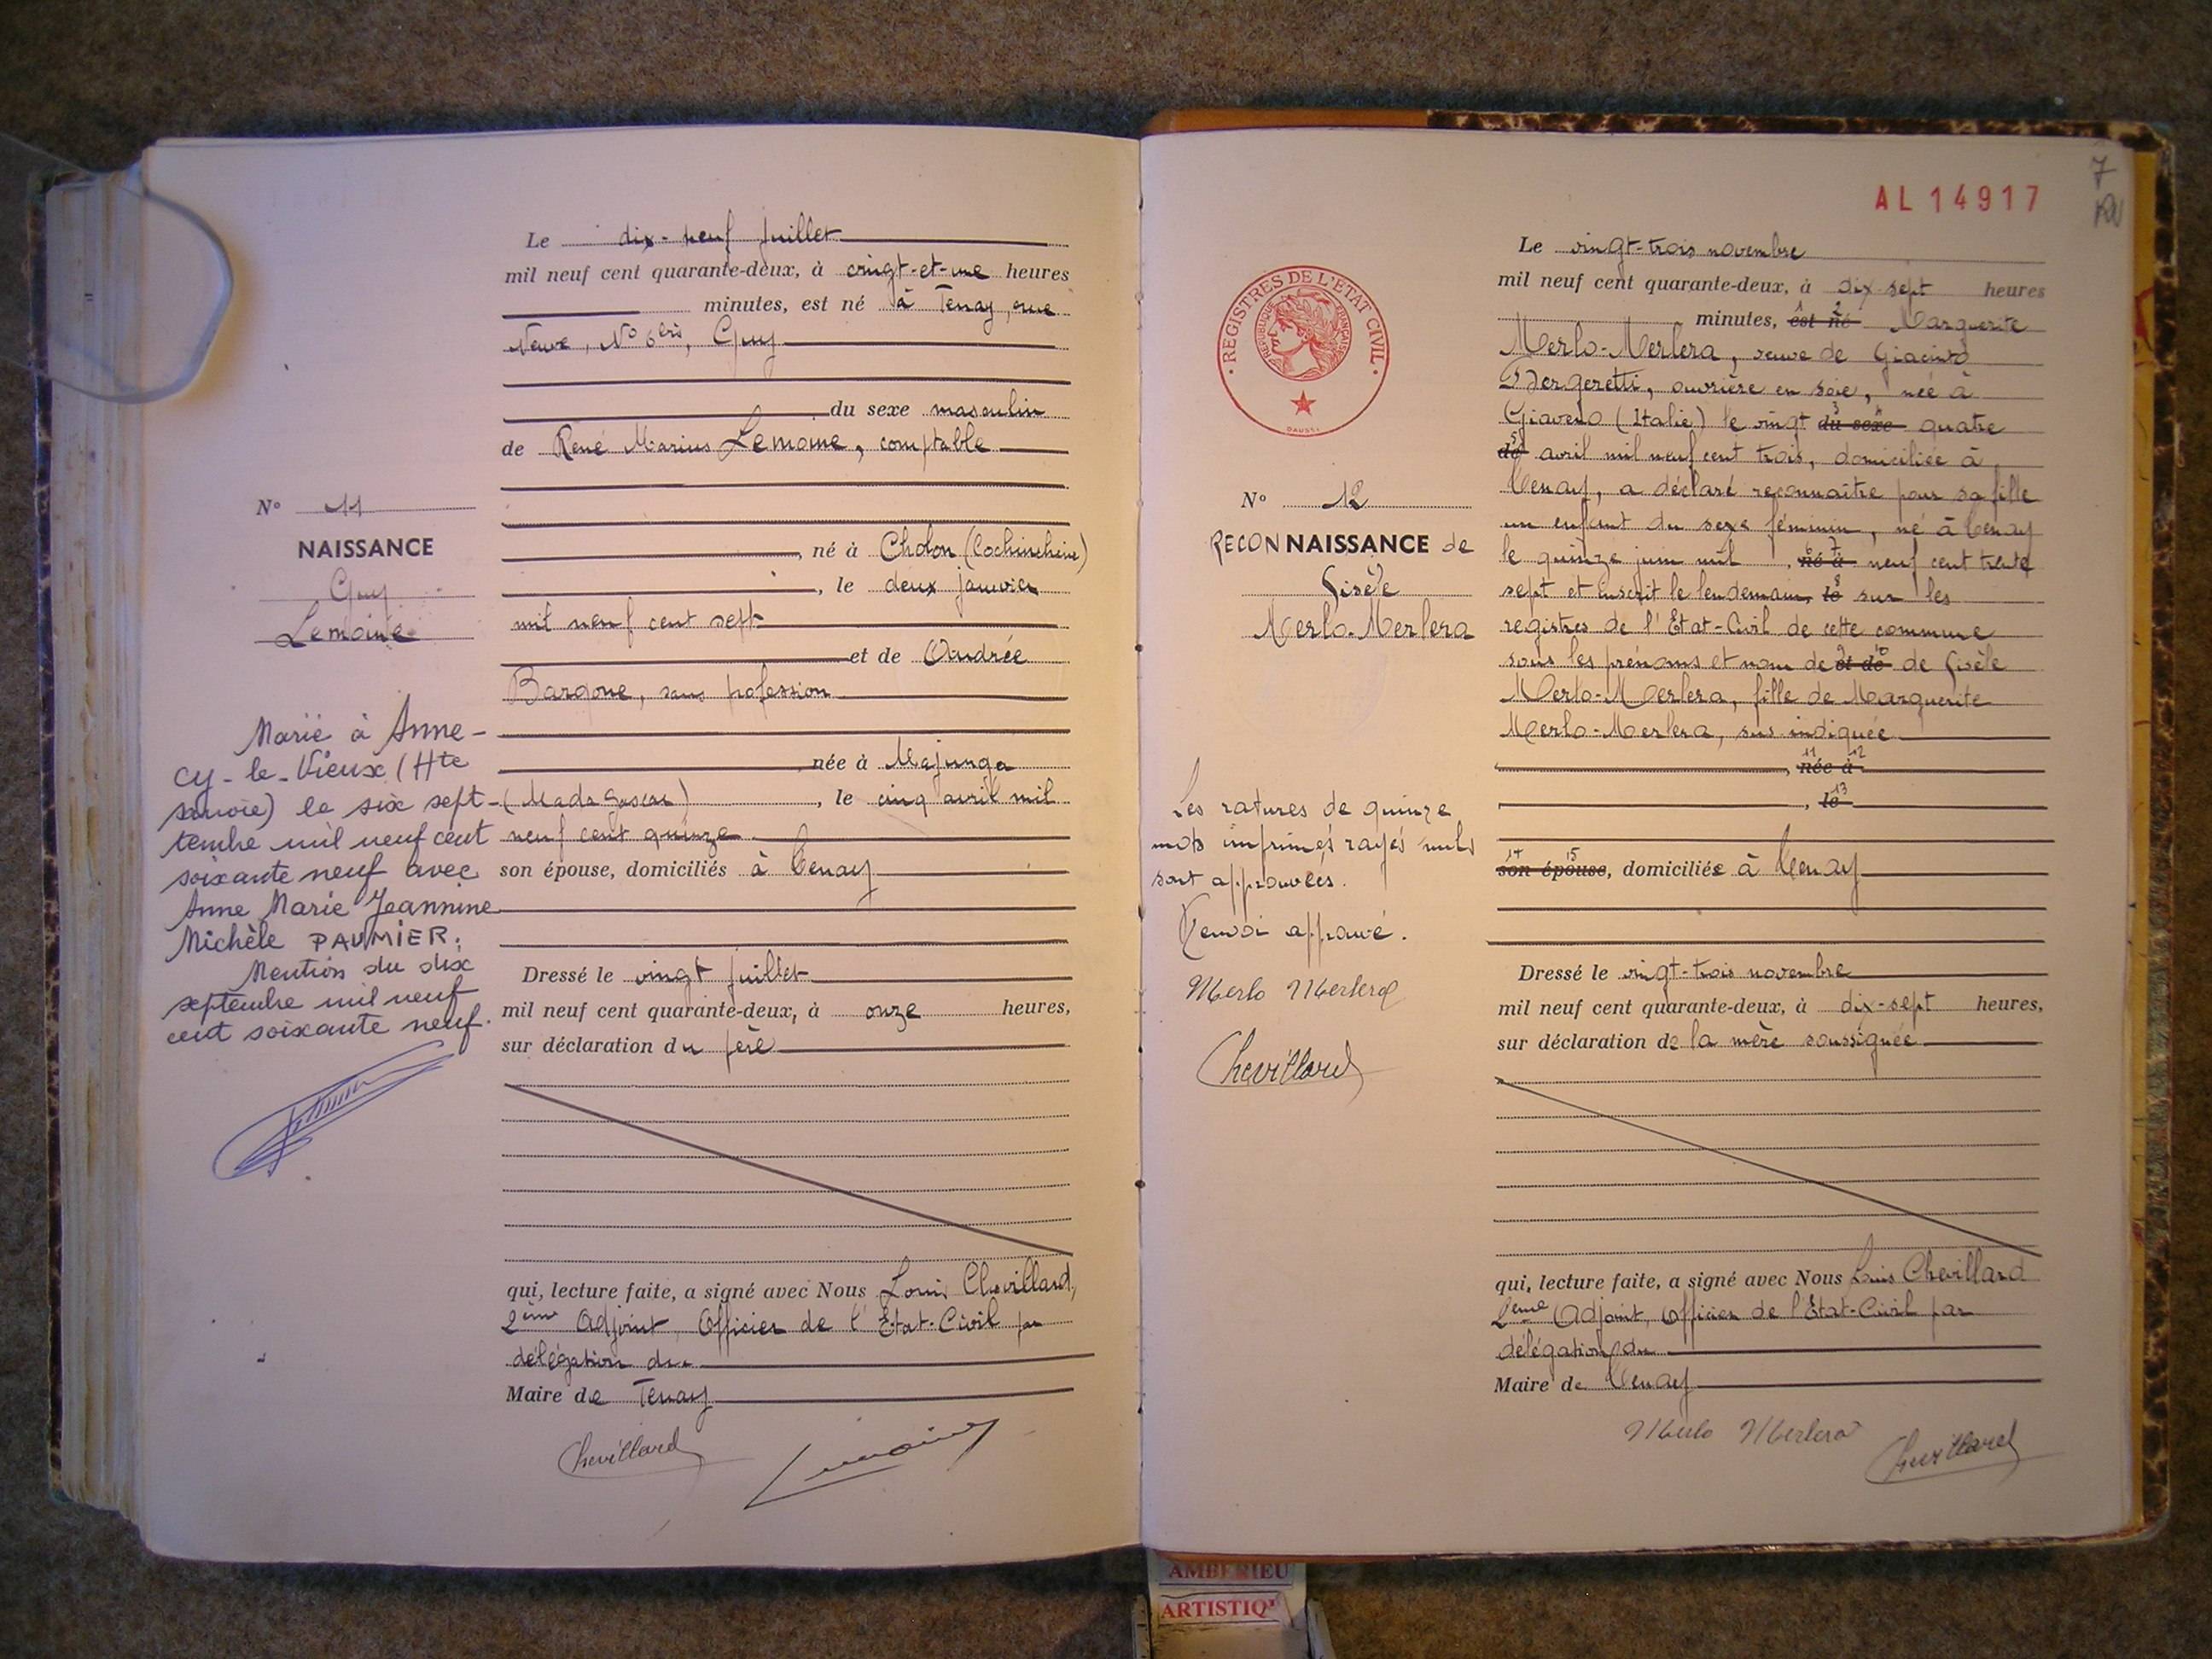 Le dix-neuf juillet
mil neuf cent quarante-deux, à vingt-et-une heures
minutes, est né à Tenay, rue
Neuve, N° 6 bis, Guy
du sexe masculin
de René Marius Lemoine, comptable
né à Cholon (Cochinchine)
, le deux janvier
mil neuf cent sept
et de Andrée
Bargone, sans profession
née à Majunga
(Madagascar), le cinq avril mil
neuf cent quinze
son épouse, domiciliés à Tenay
Dressé le vingt juillet
mil neuf cent quarante-deux, à onze heures,
sur déclaration du père
qui, lecture faite, a signé avec Nous Louis Chevillard,
2ème Adjoint, Officier de l'Etat-Civil par
délégation du
Maire de Tenay
Chevillard
Lemoine
N° 11
NAISSANCE
Guy
Lemoine
Marié à Anne-
cy-le-Vieux (Hte
Savoie) le six sept-
tembre mil neuf cent
soixante neuf avec
Anne Marie Jeannine
Michèle PAUMIER.
Mention du dix
septembre mil neuf
cent soixante neuf.
7
AL 14917
REGISTRES DE L'ETAT CIVIL
REPUBLIQUE FRANÇAISE
DAUSSI
N° 12
RECONNAISSANCE de
Gisèle
Merlo-Merlera
Les ratures de quinze
mots imprimés rayés nuls
sont approuvées.
Renvoi approuvé.
Merlo Merlera
Chevillard
Le vingt-trois novembre
mil neuf cent quarante-deux, à dix-sept heures
minutes, est né Marguerite
Merlo-Merlera, veuve de Giacinto
Bergeretti, ouvrière en soie, née à
Giaveno (Italie) le vingt du sexe quatre
de avril mil neuf cent trois, domiciliée à
Tenay, a déclaré reconnaître pour sa fille
un enfant du sexe féminin, né à Tenay
le quinze juin mil , né à neuf cent trente
sept et inscrit le lendemain, le sur les
registres de l'Etat-Civil de cette commune
sous les prénoms et nom de et de de Gisèle
Merlo-Merlera, fille de Marguerite
Merlo-Merlera, sus indiquée
, née à
, le
son épouse, domiciliée à Tenay
Dressé le vingt-trois novembre
mil neuf cent quarante-deux, à dix-sept heures,
sur déclaration de la mère soussignée
qui, lecture faite, a signé avec Nous Louis Chevillard
2ème Adjoint, Officier de l'Etat-Civil par
délégation du
Maire de Tenay
Merlo Merlera
Chevillard
AMBERIEU
ARTISTIQ